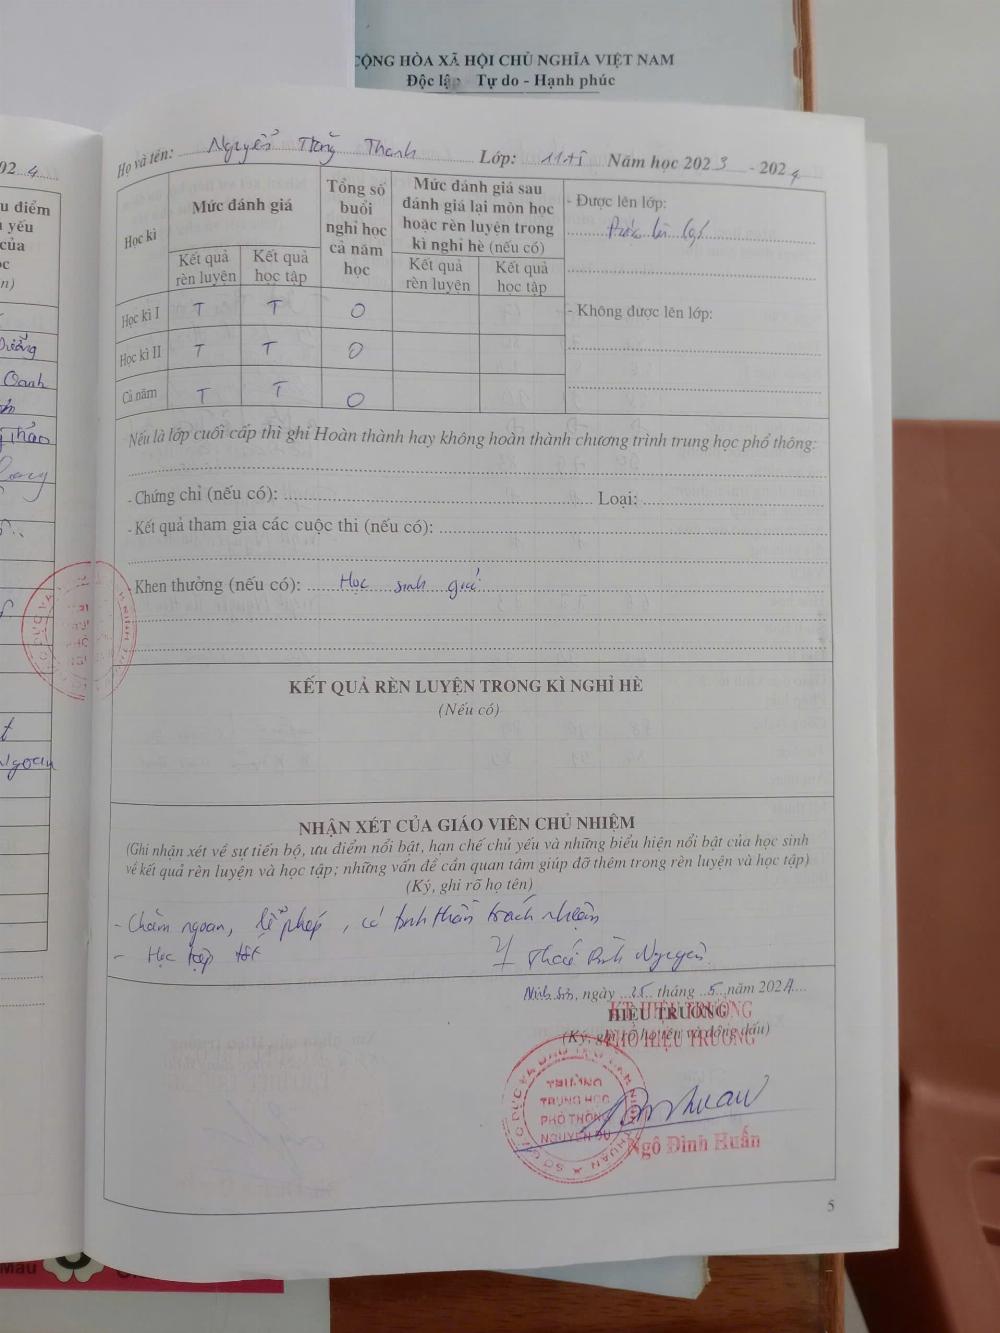 CỘNG HÒA XÃ HỘI CHỦ NGHĨA VIỆT NAM
Độc lập - Tự do - Hạnh phúc
Họ và tên: Nguyễn Thanh Lớp: 11 Năm học 2023 - 2024
Học kì
Mức đánh giá
Tổng số buổi nghỉ học cả năm học
Mức đánh giá sau đánh giá lại môn học hoặc rèn luyện trong kì nghỉ hè (nếu có)
- Được lên lớp:
Được lên lớp
Kết quả rèn luyện Kết quả học tập Kết quả rèn luyện Kết quả học tập
Học kì I T T 0
- Không được lên lớp:
Học kì II T T 0
Cả năm T T 0
Nếu là lớp cuối cấp thì ghi Hoàn thành hay không hoàn thành chương trình trung học phổ thông:
- Chứng chỉ (nếu có): Loại:
- Kết quả tham gia các cuộc thi (nếu có):
- Khen thưởng (nếu có): Học sinh giỏi
KẾT QUẢ RÈN LUYỆN TRONG KÌ NGHỈ HÈ
(Nếu có)
NHẬN XÉT CỦA GIÁO VIÊN CHỦ NHIỆM
(Ghi nhận xét về sự tiến bộ, ưu điểm nổi bật, hạn chế chủ yếu và những biểu hiện nổi bật của học sinh
về kết quả rèn luyện và học tập; những vấn đề cần quan tâm giúp đỡ thêm trong rèn luyện và học tập)
(Ký, ghi rõ họ tên)
- Chăm ngoan, lễ phép, có tinh thần trách nhiệm
- Học tập tốt
Ninh Sơn, ngày 25 tháng 5 năm 2024
HIỆU TRƯỞNG
KT. HIỆU TRƯỞNG
(Ký, ghi rõ họ tên và đóng dấu)
PHÓ HIỆU TRƯỞNG
TRƯỜNG
TRUNG HỌC
PHỔ THÔNG
NGUYỄN DU
Ngô Đình Huấn
5